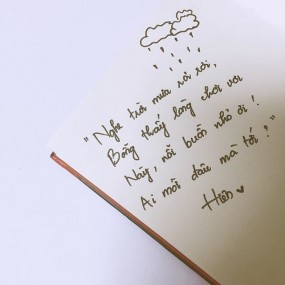 "Nghe trời mưa rả rơi,
Bỗng thấy lòng chơi vơi
Này, nỗi buồn nhỏ ơi!
Ai mời đâu mà tới?"
Hiên ♥